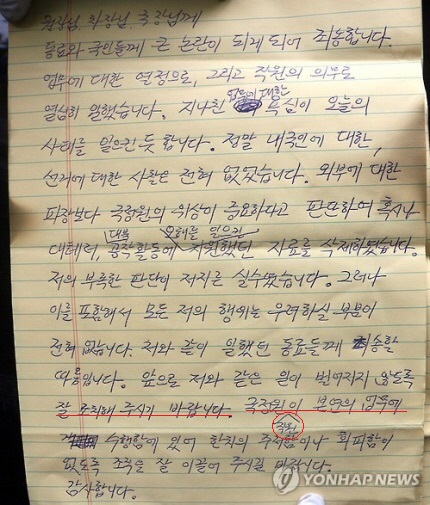 원장님, 차장님, 국장님께
동료와 국민들께 큰 논란이 되게 되어 죄송합니다.
업무에 대한 열정으로, 그리고 직원의 의무로
열심히 일했습니다. 지나친 업무에 대한 욕심이 오늘의
사태를 일으킨 듯 합니다. 정말 내국인에 대한,
선거에 대한 사찰은 전혀 없었습니다. 외부에 대한
파장보다 국정원의 위상이 중요하다고 판단하여 혹시나
대테러, 대북 공작활동에 오해를 일으킨 지원했던 자료를 삭제하였습니다.
저의 부족한 판단이 저지른 실수였습니다. 그러나
이를 포함해서 모든 저의 행위는 우려하실 부분이
전혀 없습니다. 저와 같이 일했던 동료들께 죄송할
따름입니다. 앞으로 저와 같은 일이 벌어지지 않도록
잘 조치해 주시기 바랍니다. 국정원이 본연의 업무에
수행함에 있어 한치의 주저함이나 회피함이
직원
없도록 조직을 잘 이끌어 주시길 바랍니다.
감사합니다.
YONHAP NEWS